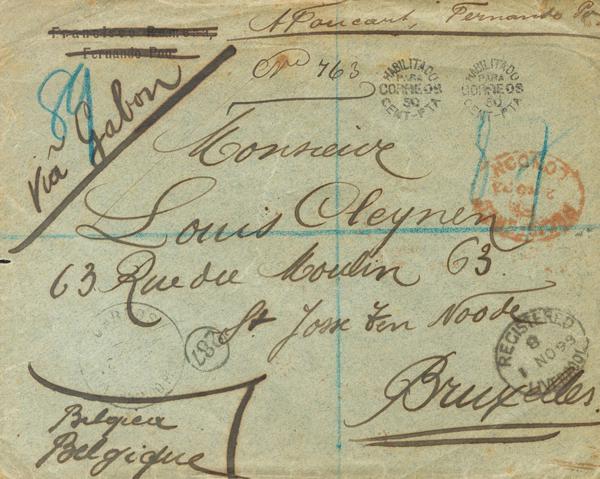 Francisco Romera,
Fernando Poo.
A Poucart, Fernando Po.
No 463
HABILITADO
PARA
CORREOS
50
CENT-PTA
HABILITADO
PARA
CORREOS
50
CENT-PTA
89
via Gabon
Monsieur
Louis Cleynen
63 Rue du Moulin 63
St Josse ten Noode
Bruxelles
LONDON
REGISTERED
8
1 NO 99
LIVERPOOL
287
CORREOS
Belgica
Belgique